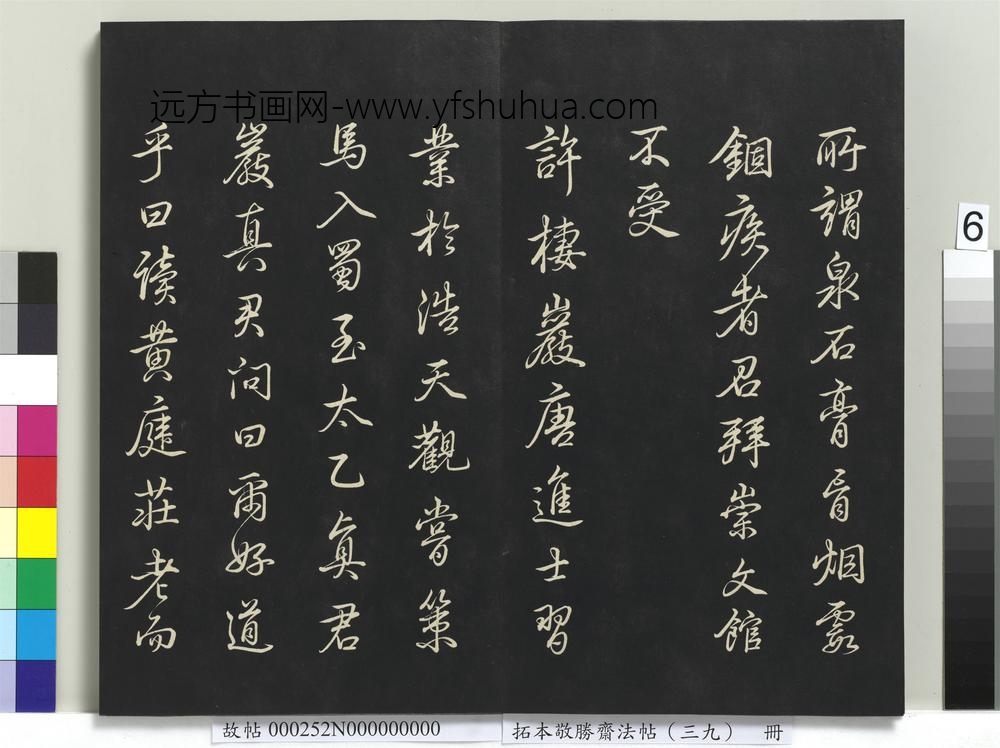 远方书画网-www.yfshuhua.com
所謂泉石膏肓烟霞
錮疾者召拜崇文館
不受
許棲巖唐進士習
業於浩天觀嘗策
馬入蜀至太乙真君
巖真君問曰爾好道
乎曰读黄庭莊老而
6
故帖 000252N000000000
拓本敬勝齋法帖(三九) 冊